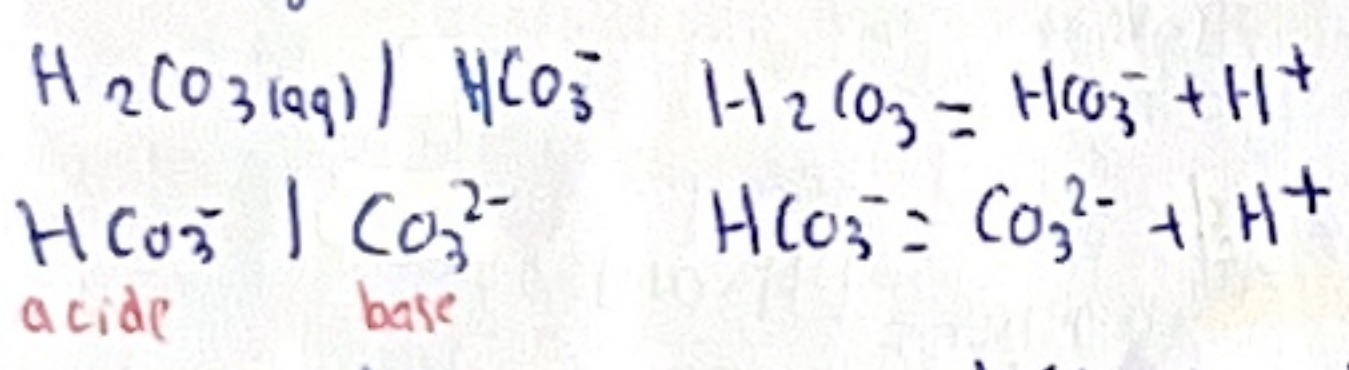 H₂CO₃(aq) / HCO₃⁻ H₂CO₃ = HCO₃⁻ + H⁺
HCO₃⁻ / CO₃²⁻ HCO₃⁻ = CO₃²⁻ + H⁺
acide base